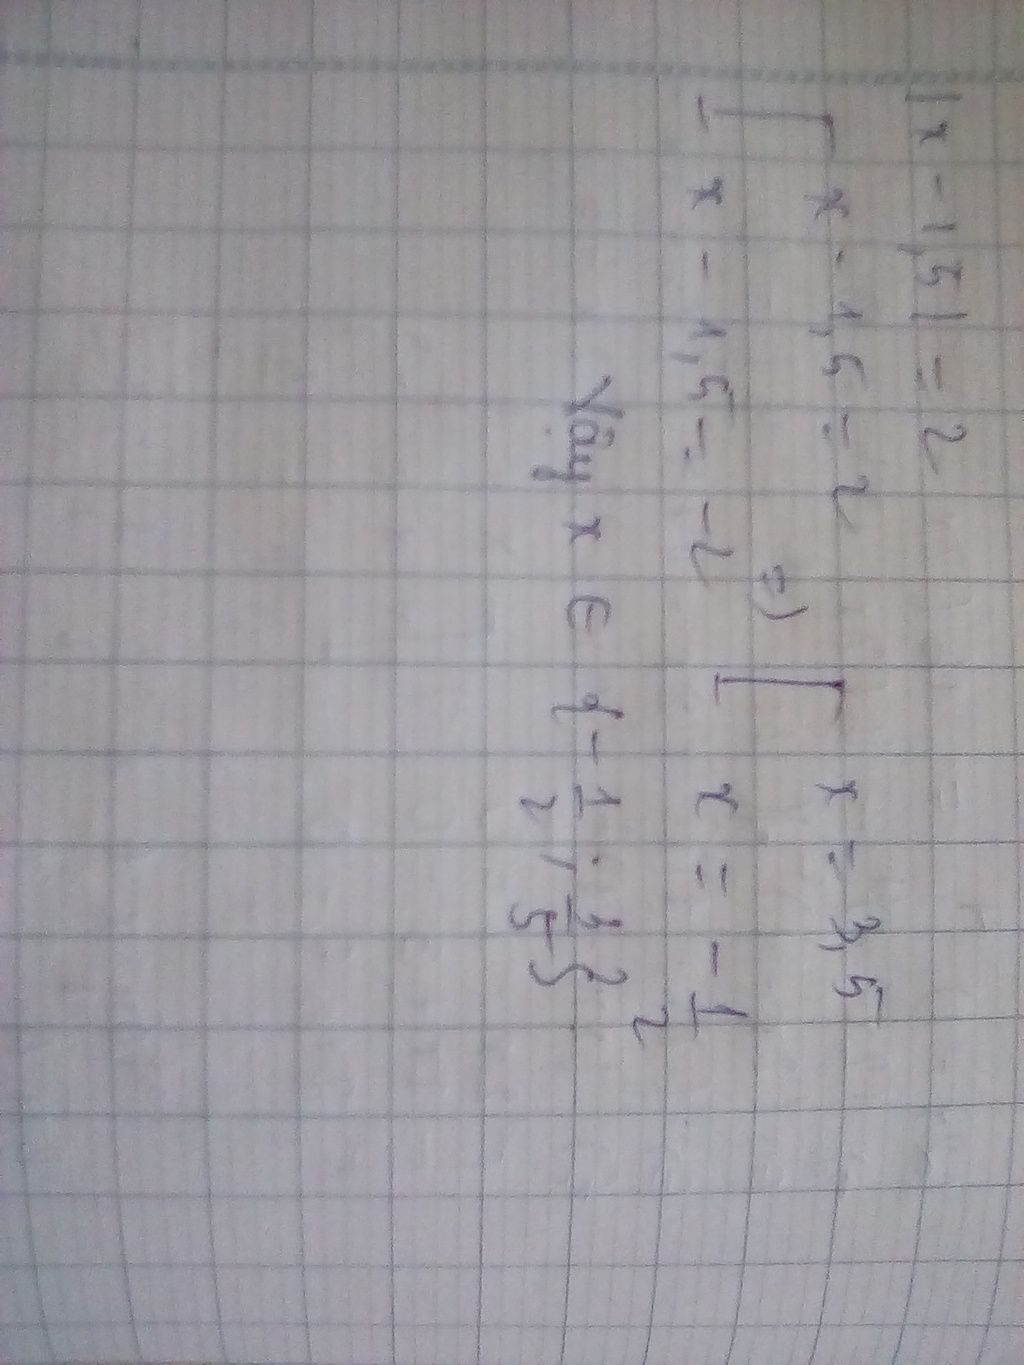 |x - 1,5| = 2
[ x - 1,5 = 2 => [ x = 3,5
x - 1,5 = -2 x = - 1/2
Vậy x ∈ { - 1/2 ; 3/5 }